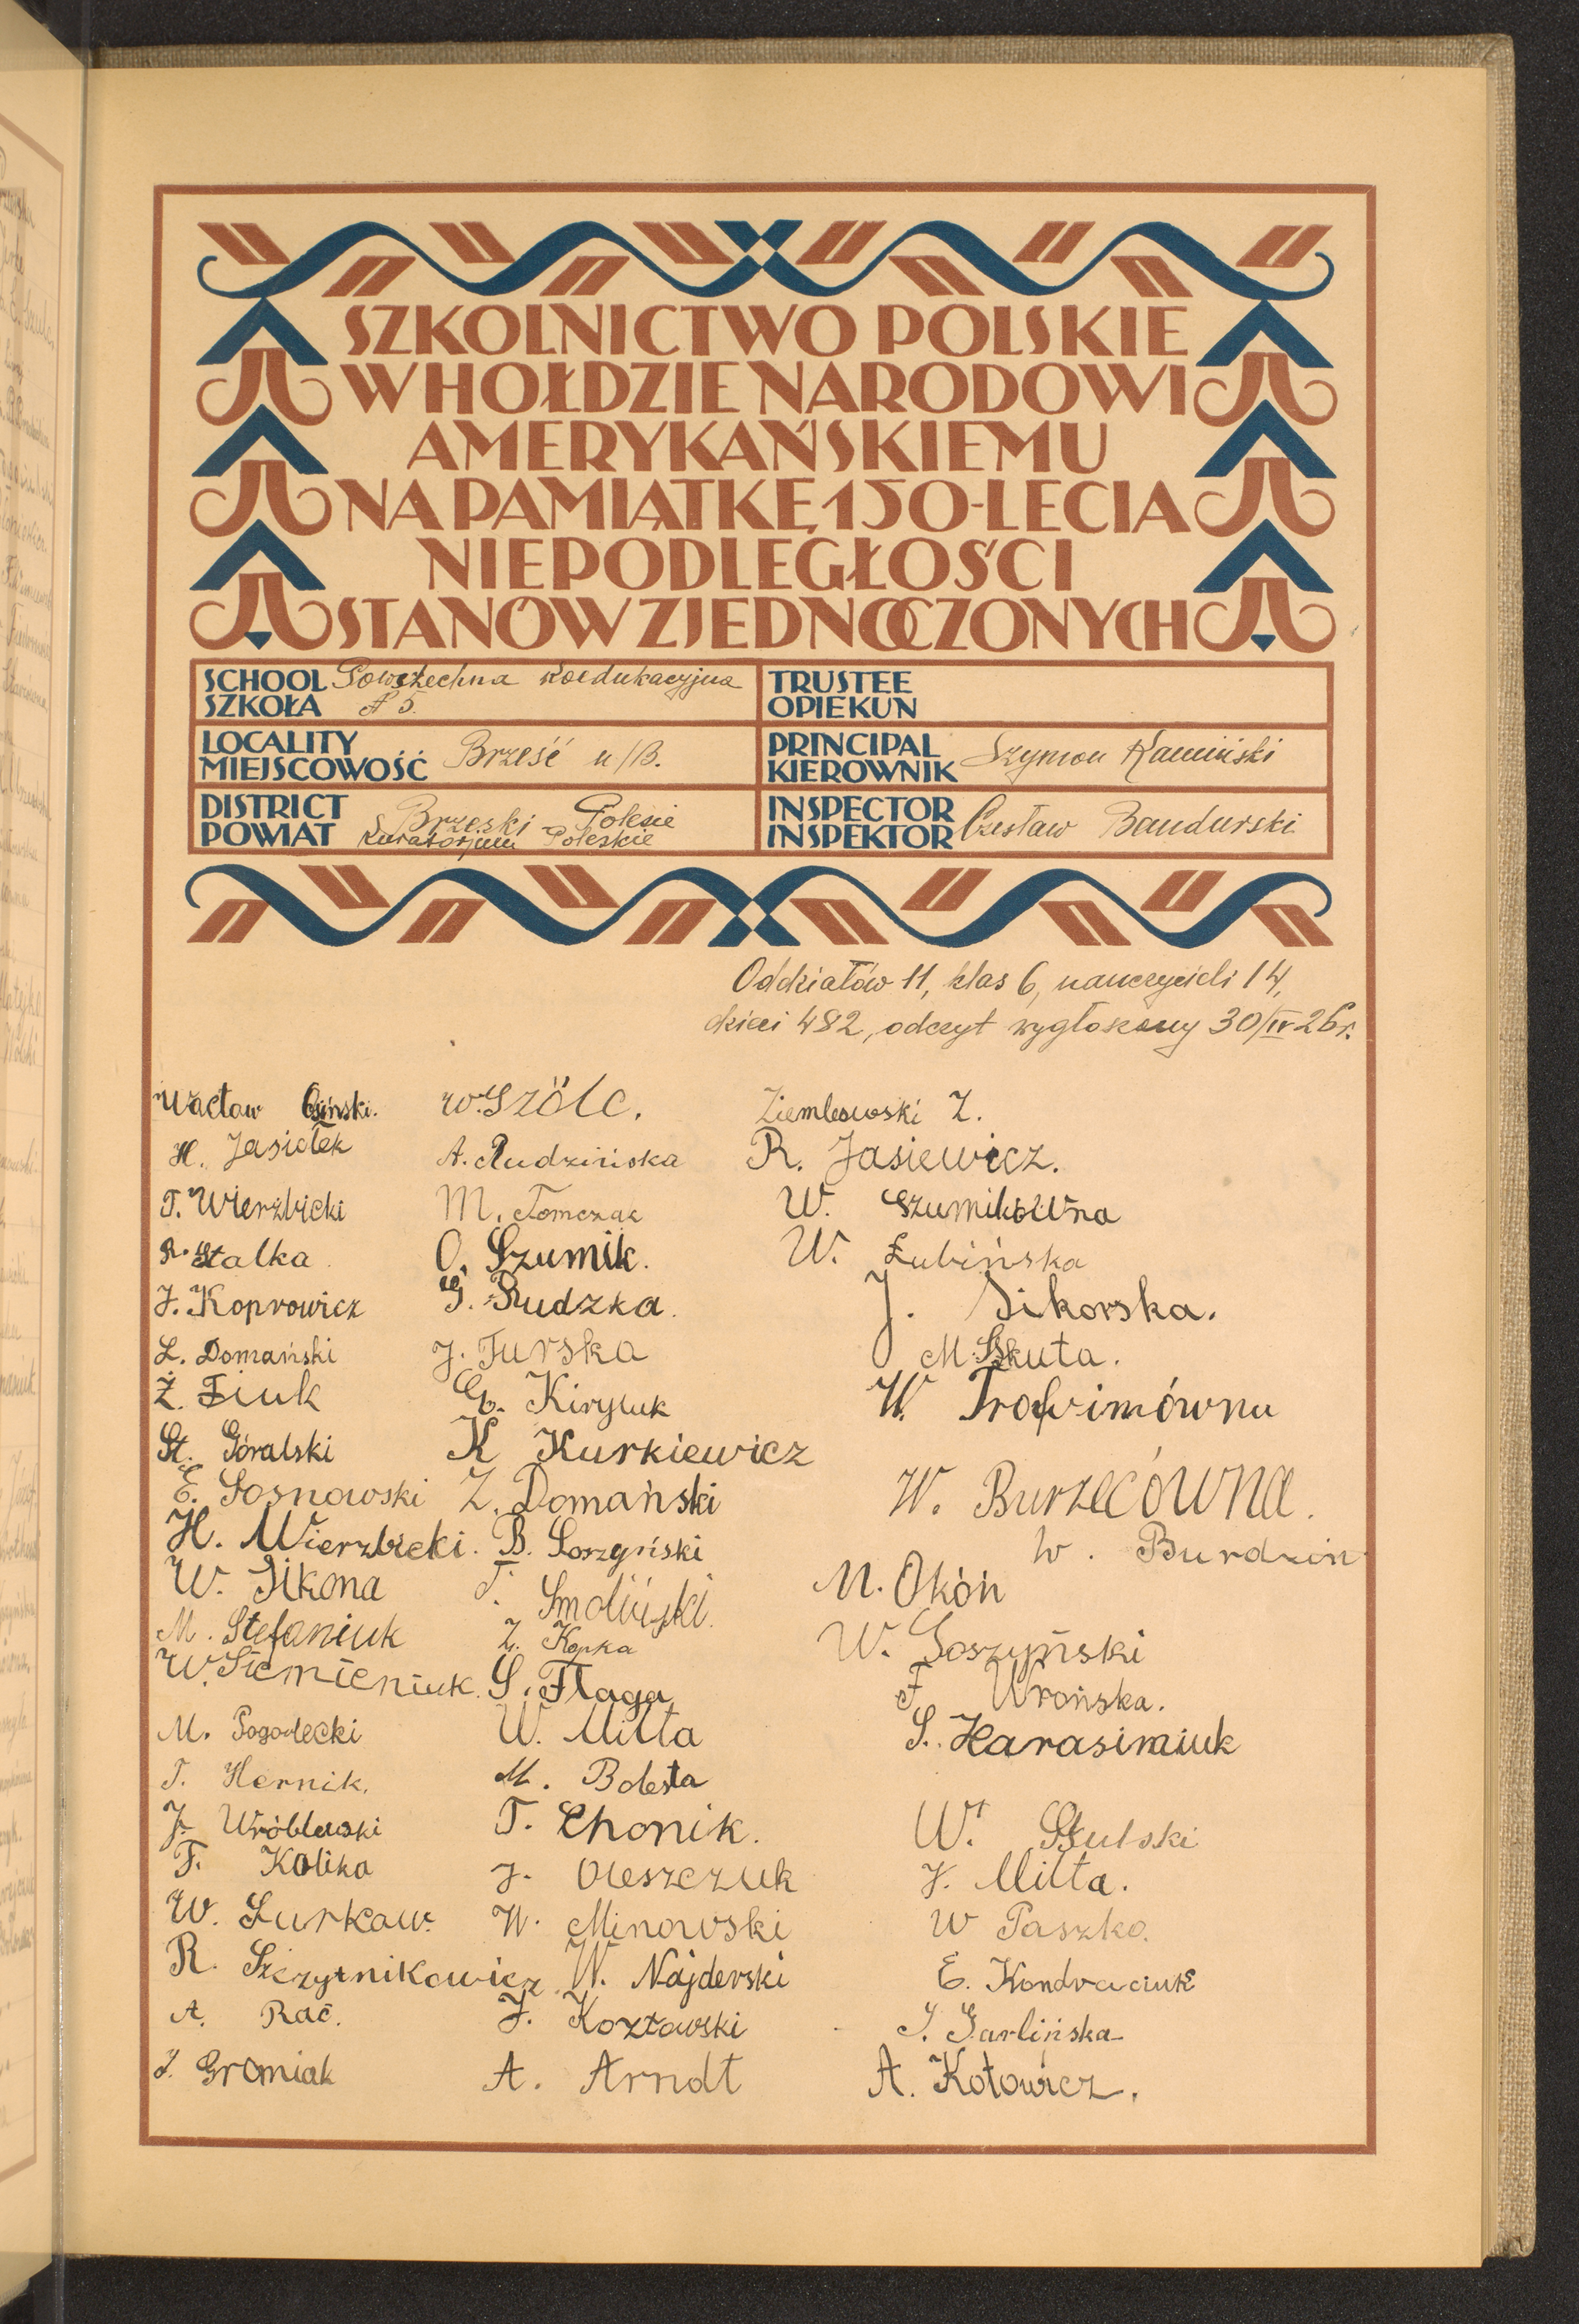 SZKOLNICTWO POLSKIE
W HOŁDZIE NARODOWI
AMERYKAŃSKIEMU
NA PAMIĄTKĘ 150-LECIA
NIEPODLEGŁOŚCI
STANÓW ZJEDNOCZONYCH
SCHOOL SZKOŁA Powszechna Koedukacyjna
№ 5.
TRUSTEE
OPIEKUN
LOCALITY
MIEJSCOWOŚĆ Brześć n/B.
PRINCIPAL
KIEROWNIK Szymon Kamiński
DISTRICT
POWIAT Brzeski - Polesie
Kuratorjum Poleskie
INSPECTOR
INSPEKTOR Czesław Bandurski
Oddziałów 11, klas 6, nauczycieli 14,
dzieci 482, odczyt wygłoszony 30/IV 26 r.
Wacław Osiński.
H. Jasiołek
T. Wierzbicki
R. Stalka
J. Koprowicz
L. Domański
Ż. Ziuk
St. Góralski
E. Sosnowski
H. Wierzbicki.
W. Sikona
M. Stefaniuk
W. Siemieniuk.
M. Pogodecki
T. Hernik.
J. Wróblewski
F. Kolika
W. Surkow.
R. Szczytnikowicz
A. Rać.
J. Gromiak
W. Szölc.
A. Rudzińska
M. Tomczak
O. Szumik.
G. Rudzka.
J. Turska
G. Kiryluk
K Kurkiewicz
Z. Domański
B. Soszyński
T. Smoliński.
Z. Kopka
S. Flaga
W. Milta
M. Bolesta
T. Chonik.
J. Oleszczuk
W. Minowski
W. Najderski
J. Kozłowski
A. Arndt
Ziemlewski Z.
R. Jasiewicz.
W. Szumikówna
W. Łubińska
J. Sikorska.
M. Skuta.
W. Trofimówna
W. Burzecówna.
W. Burdzin
M. Okóń
W. Soszyński
F. Wrońska.
S. Harasimiuk
W. Stulski
J. Milta.
W Paszko.
E. Kondraciuk
J. Garlińska
A. Kotowicz.